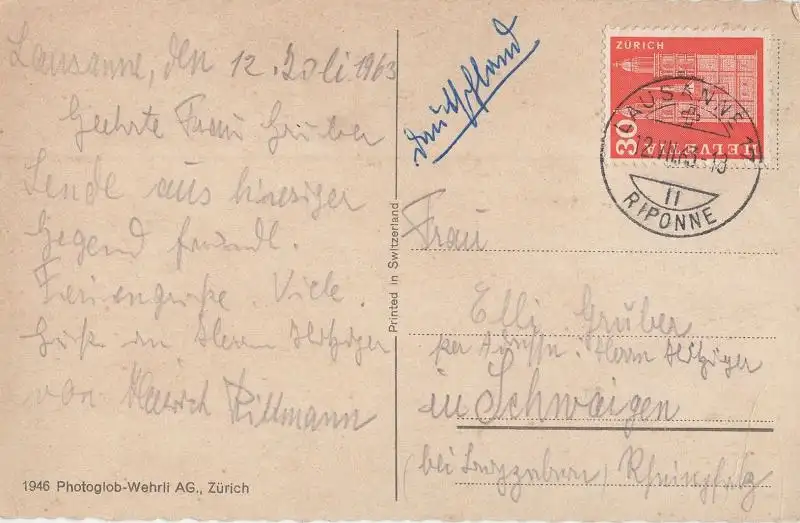 Lausanne, den 12. Juli 1963
Geehrte Frau Gruber
Sende aus hiesiger
Gegend freundl.
Feriengrüße. Viele
Grüße an Herrn
von Heinrich Dittmann
1946 Photoglob-Wehrli AG., Zürich
Printed in Switzerland
Deutschland
ZÜRICH
30
HELVETIA
LAUSANNE 1
12.VII.63-18
II
RIPONNE
Frau
Elli Gruber
per Adresse: Herrn
in Schwaigen
(bei Bergzabern) Rheinpfalz